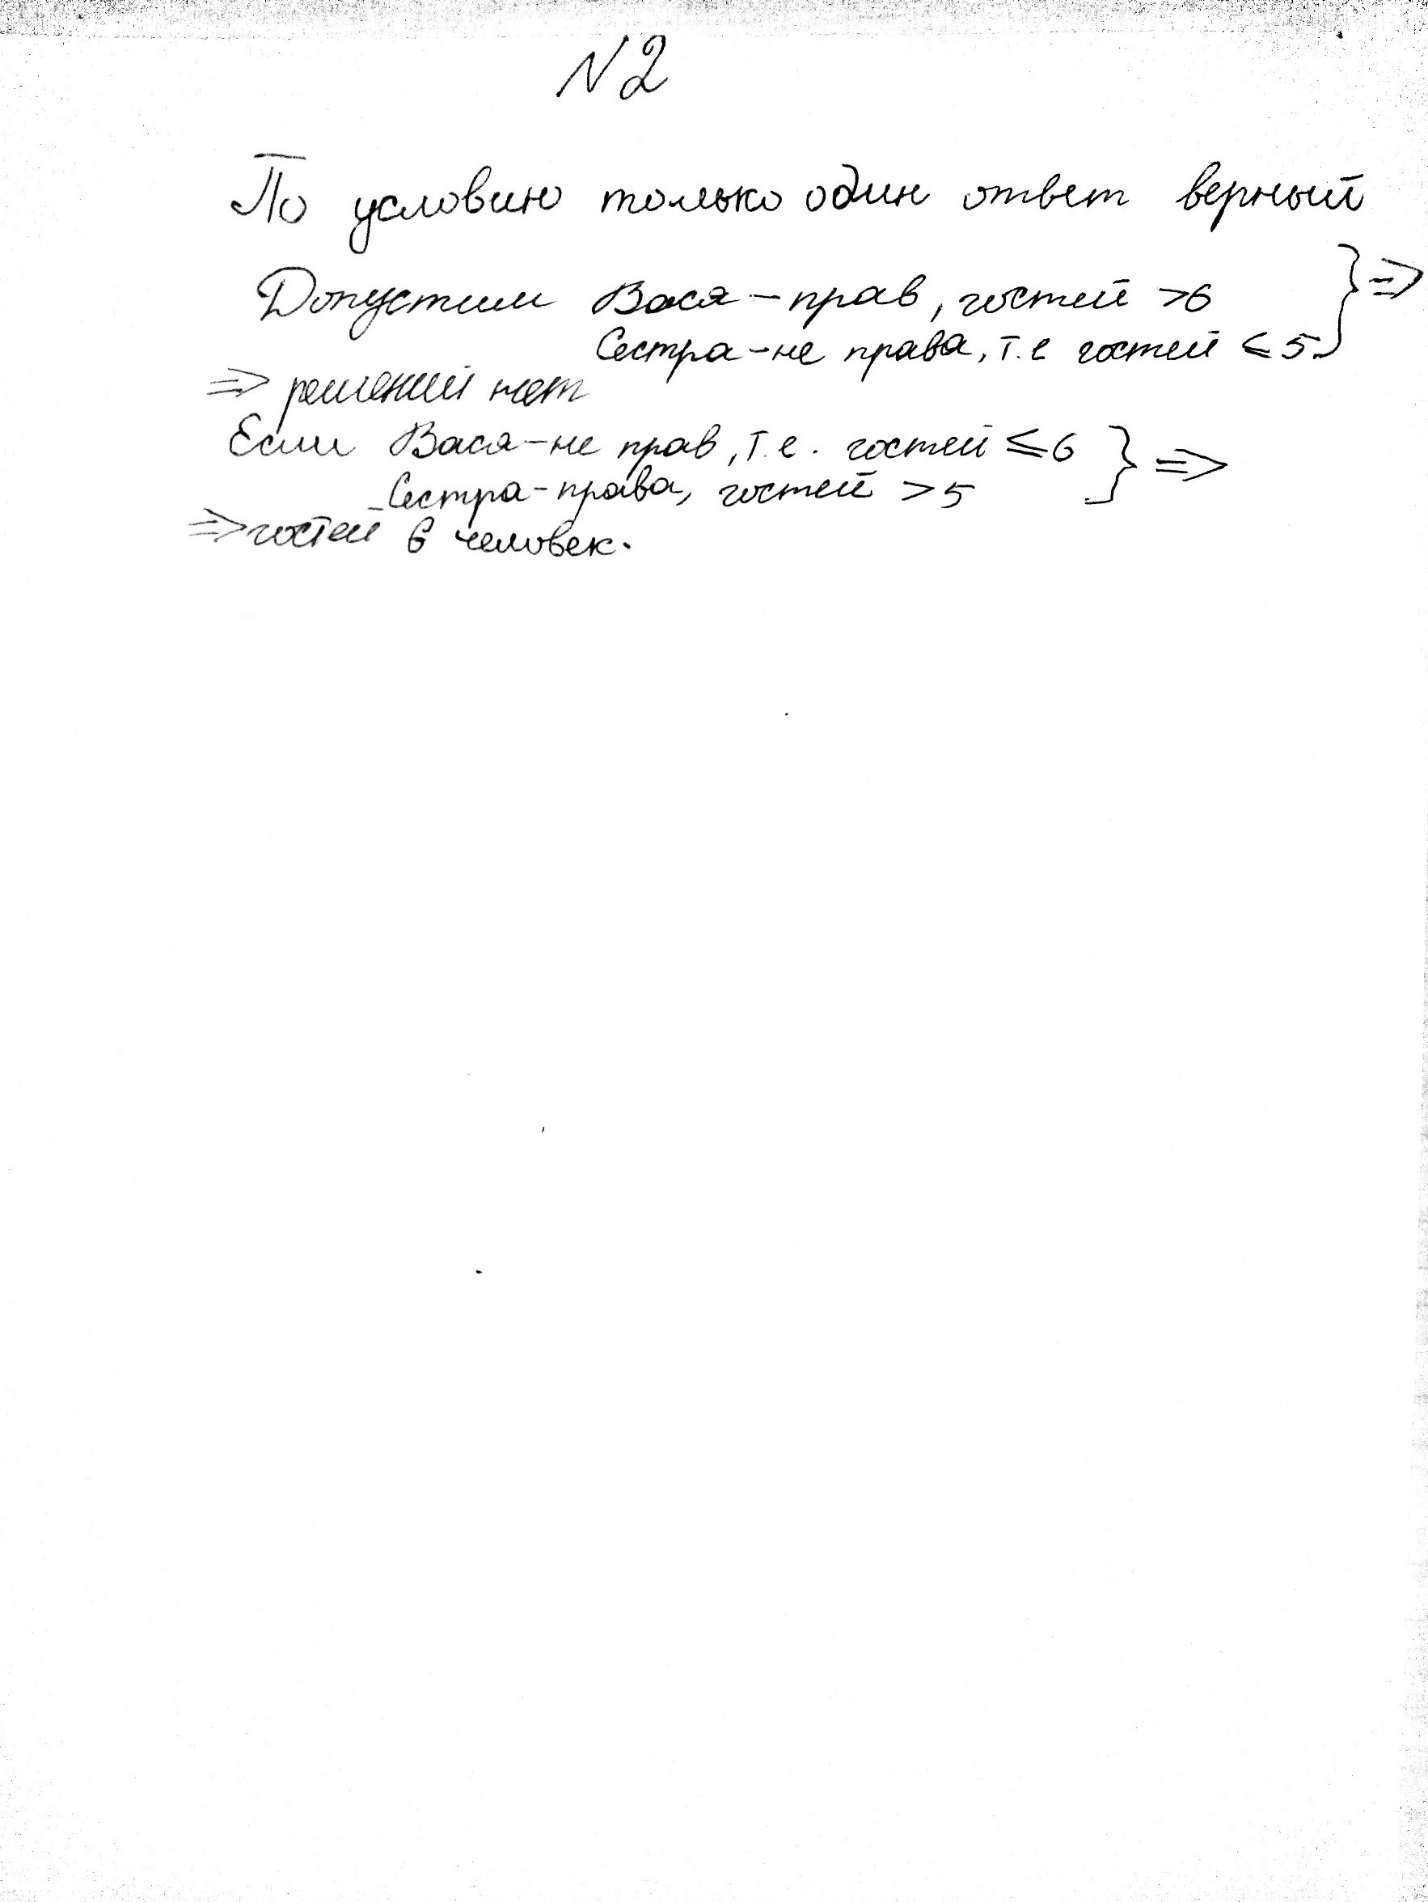 N2
По условию только один ответ верный
Допустим Вася - прав, гостей >6 } =>
Сестра - не права, т.е гостей ≤ 5
=> решений нет
Если Вася - не прав, т.е. гостей ≤ 6 } =>
Сестра - права, гостей > 5
=> гостей 6 человек.